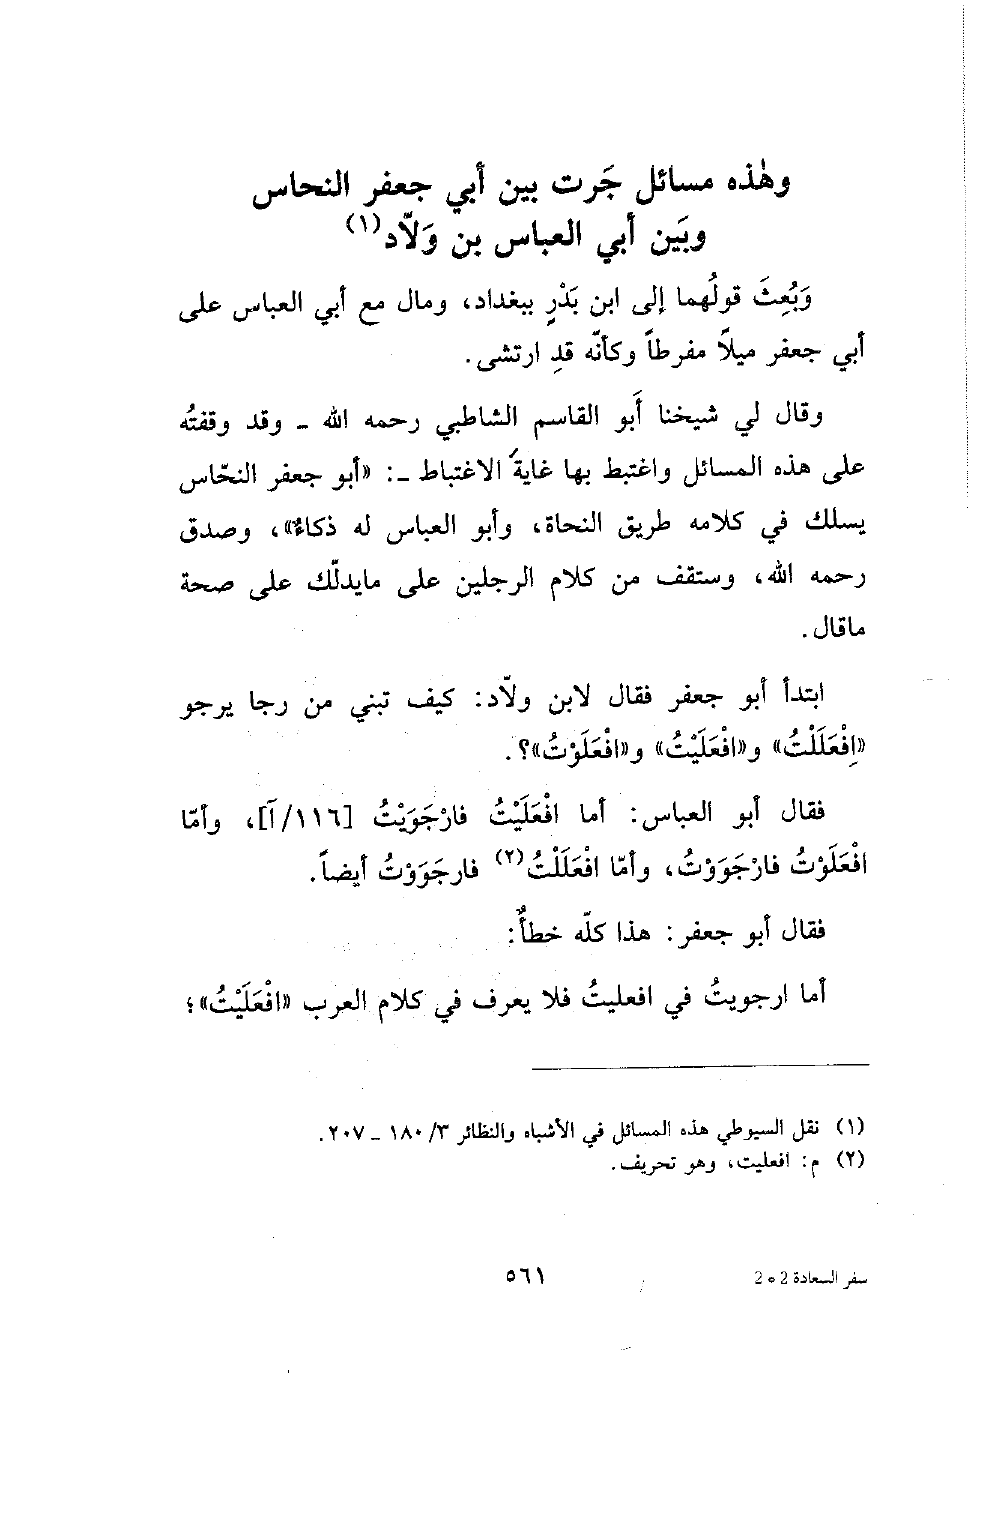 وهٰذه مسائل جَرت بين أبي جعفر النحاس
وبَين أبي العباس بن وَلاّد(١)
وَبُعِثَ قولُهما إلى ابن بَدْرٍ ببغداد، ومال مع أبي العباس على
أبي جعفر ميلاً مفرطاً وكأنّه قدِ ارتشى.
وقال لي شيخنا أَبو القاسم الشاطبي رحمه الله ـ وقد وقفتُه
على هذه المسائل واغتبط بها غايةَ الاغتباط ـ: «أبو جعفر النحّاس
يسلك في كلامه طريق النحاة، وأبو العباس له ذكاءٌ»، وصدق
رحمه الله، وستقف من كلام الرجلين على مايدلّك على صحة
ماقال.
ابتدأ أبو جعفر فقال لابن ولاّد: كيف تبني من رجا يرجو
«اِفْعَلَلْتُ» و«افْعَلَيْتُ» و«افْعَلَوْتُ»؟.
فقال أبو العباس: أما افْعَلَيْتُ فارْجَوَيْتُ [١١٦/آ]، وأمّا
افْعَلَوْتُ فارْجَوَوْتُ، وأمّا افْعَلَلْتُ(٢) فارجَوَوْتُ أيضاً.
فقال أبو جعفر: هذا كلّه خطأٌ:
أما ارجويتُ في افعليتُ فلا يعرف في كلام العرب «افْعَلَيْتُ»؛
(١) نقل السيوطي هذه المسائل في الأشباه والنظائر ٣/ ١٨٠ ـ ٢٠٧.
(٢) م: افعليت، وهو تحريف.
سفر السعادة 2 ° 2
٥٦١